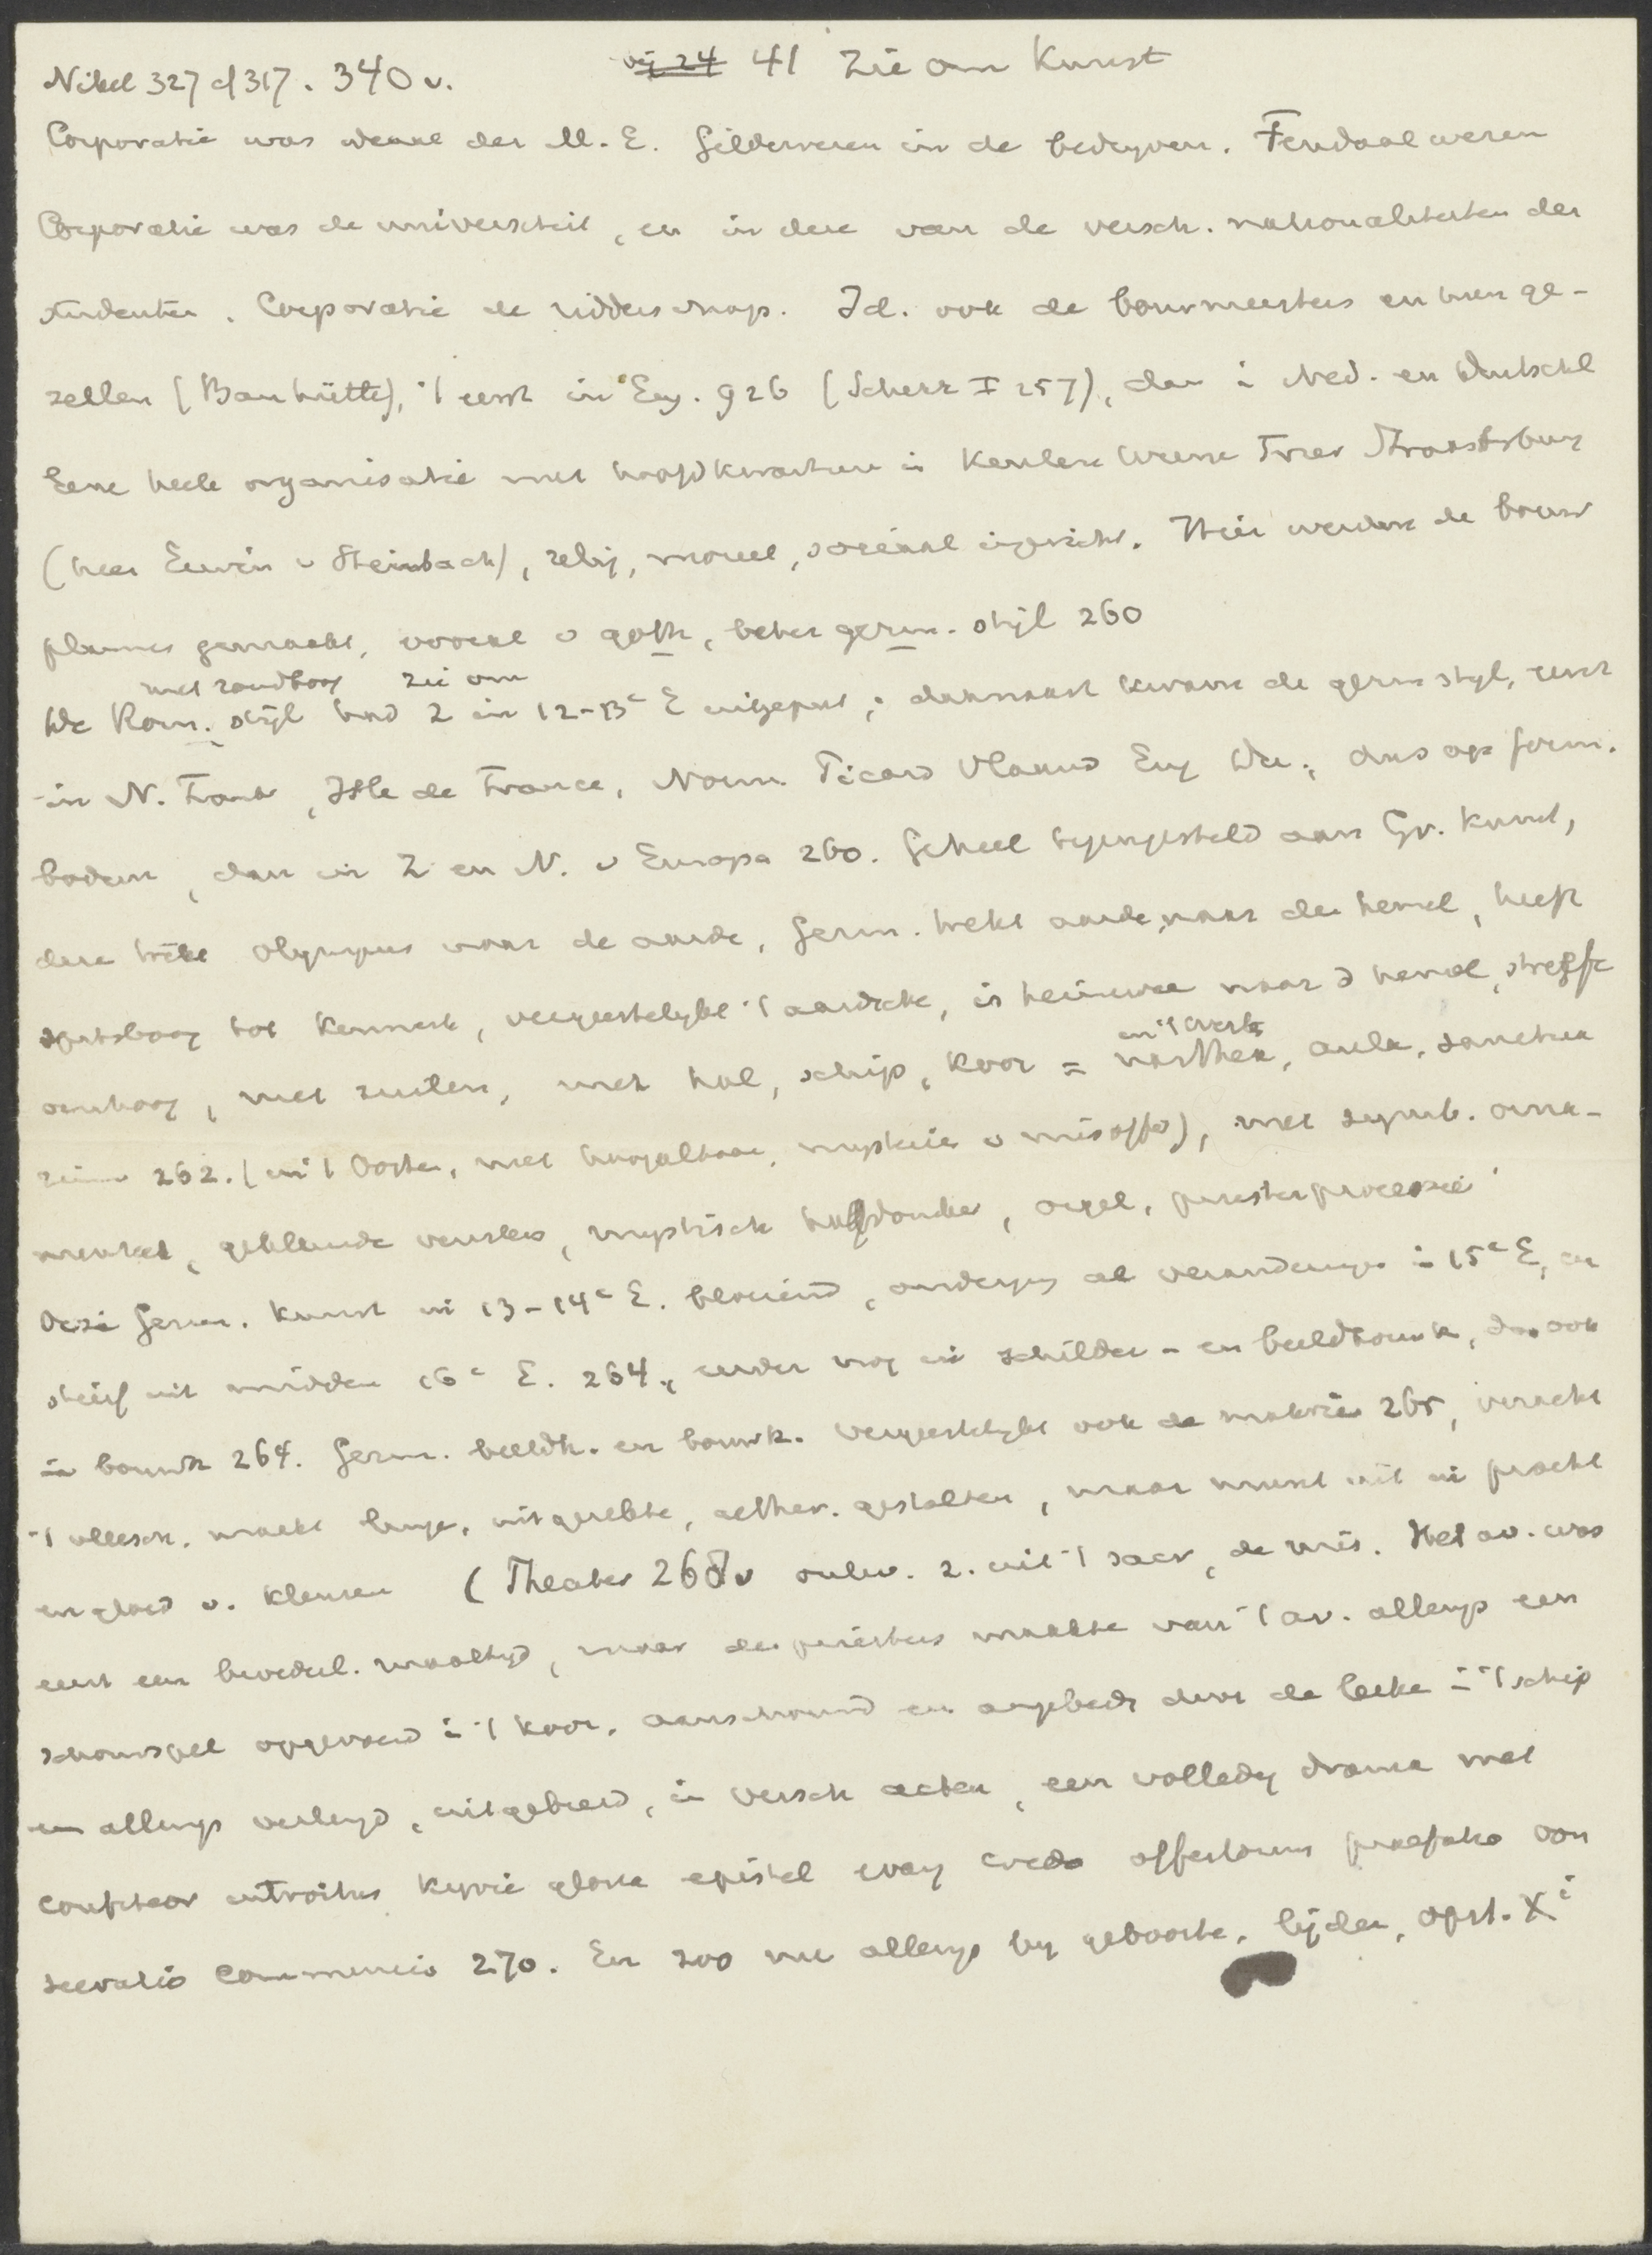 Nikel 327 cf 317. 340 v. vg 24 41 Zie om Kunst
Corporatie was ideaal der M.E. Gildewezen in de bedrijven. Feudaalwezen
Corporatie was de universiteit, en in deze van de versch. nationaliteiten der
studenten. Corporatie de ridderschap. Id. ook de bouwmeesters en hun ge-
zellen (Bauhütte), 't eerst in Eng. 926 (Scherr I 257), dan i Ned. en Duitschl
Eene heele organisatie met hoofdkwartieren in Keulen Weene Trier Straatsburg
(heer Erwin v Steinbach), relig, moreel, sociaal ingericht. Hier werden de bouw
plannen gemaakt, vooral v goth, beter germ. stijl 260
met rondboog zie om
De Rom. stijl had z in 12-13e E uitgeput; daarnaast kwam de germ stijl, eerst
in N. Frankr, Isle de France, Norm. Picard Vlaand Eng Du., dus op germ.
bodem, dan in Z en N. v Europa 260. Geheel tegengesteld aan Gr. Kunst,
deze trekt Olympus naar de aarde, Germ. trekt aarde naar den hemel, heeft
spitsboog tot kenmerk, vergeestelijkt 't aardsche, is heimwee naar d hemel, streeft
in 't West
omhoog, met zuilen, met hal, schip, koor = narthex, aula, sanctua
rium 262. (in 't Oosten, met hoogaltaar, mysterie v misoffer), met symb. orna-
menten, gekleurde vensters, mystisch halfdonker, orgel, priesterprocessie
Deze Germ. Kunst in 13-14e E. bloeiend, ondergaat al veranderingen i 15e E, en
sterft uit midden 16e E. 264, eerder nog in schilder- en beeldhouwk, dan ook
in bouwk 264. Germ. beeldh. en bouwk. vergeestelijkt ook de materie 265, veracht
't vleesch. maakt lange, uitgerekte, aether. gestalten, maar munt uit in pracht
en gloed v. kleuren (Theater 268v ontw. z. uit 't sacr, de mis. Het av. was
eerst een broederl. maaltijd, maar de priesters maakte van 't av. allengs een
schouwspel opgevoerd i 't koor, aanschouwd en aangebeden door de leeke i 't schip
en allengs verlengd, uitgebreid, in versch acten, een volledig drama met
confiteor introitus kyrie gloria epistel evang credo offertorium praefatio con
secratio communio 270. En zoo nu allengs by geboorte, lijden, opst. Xi